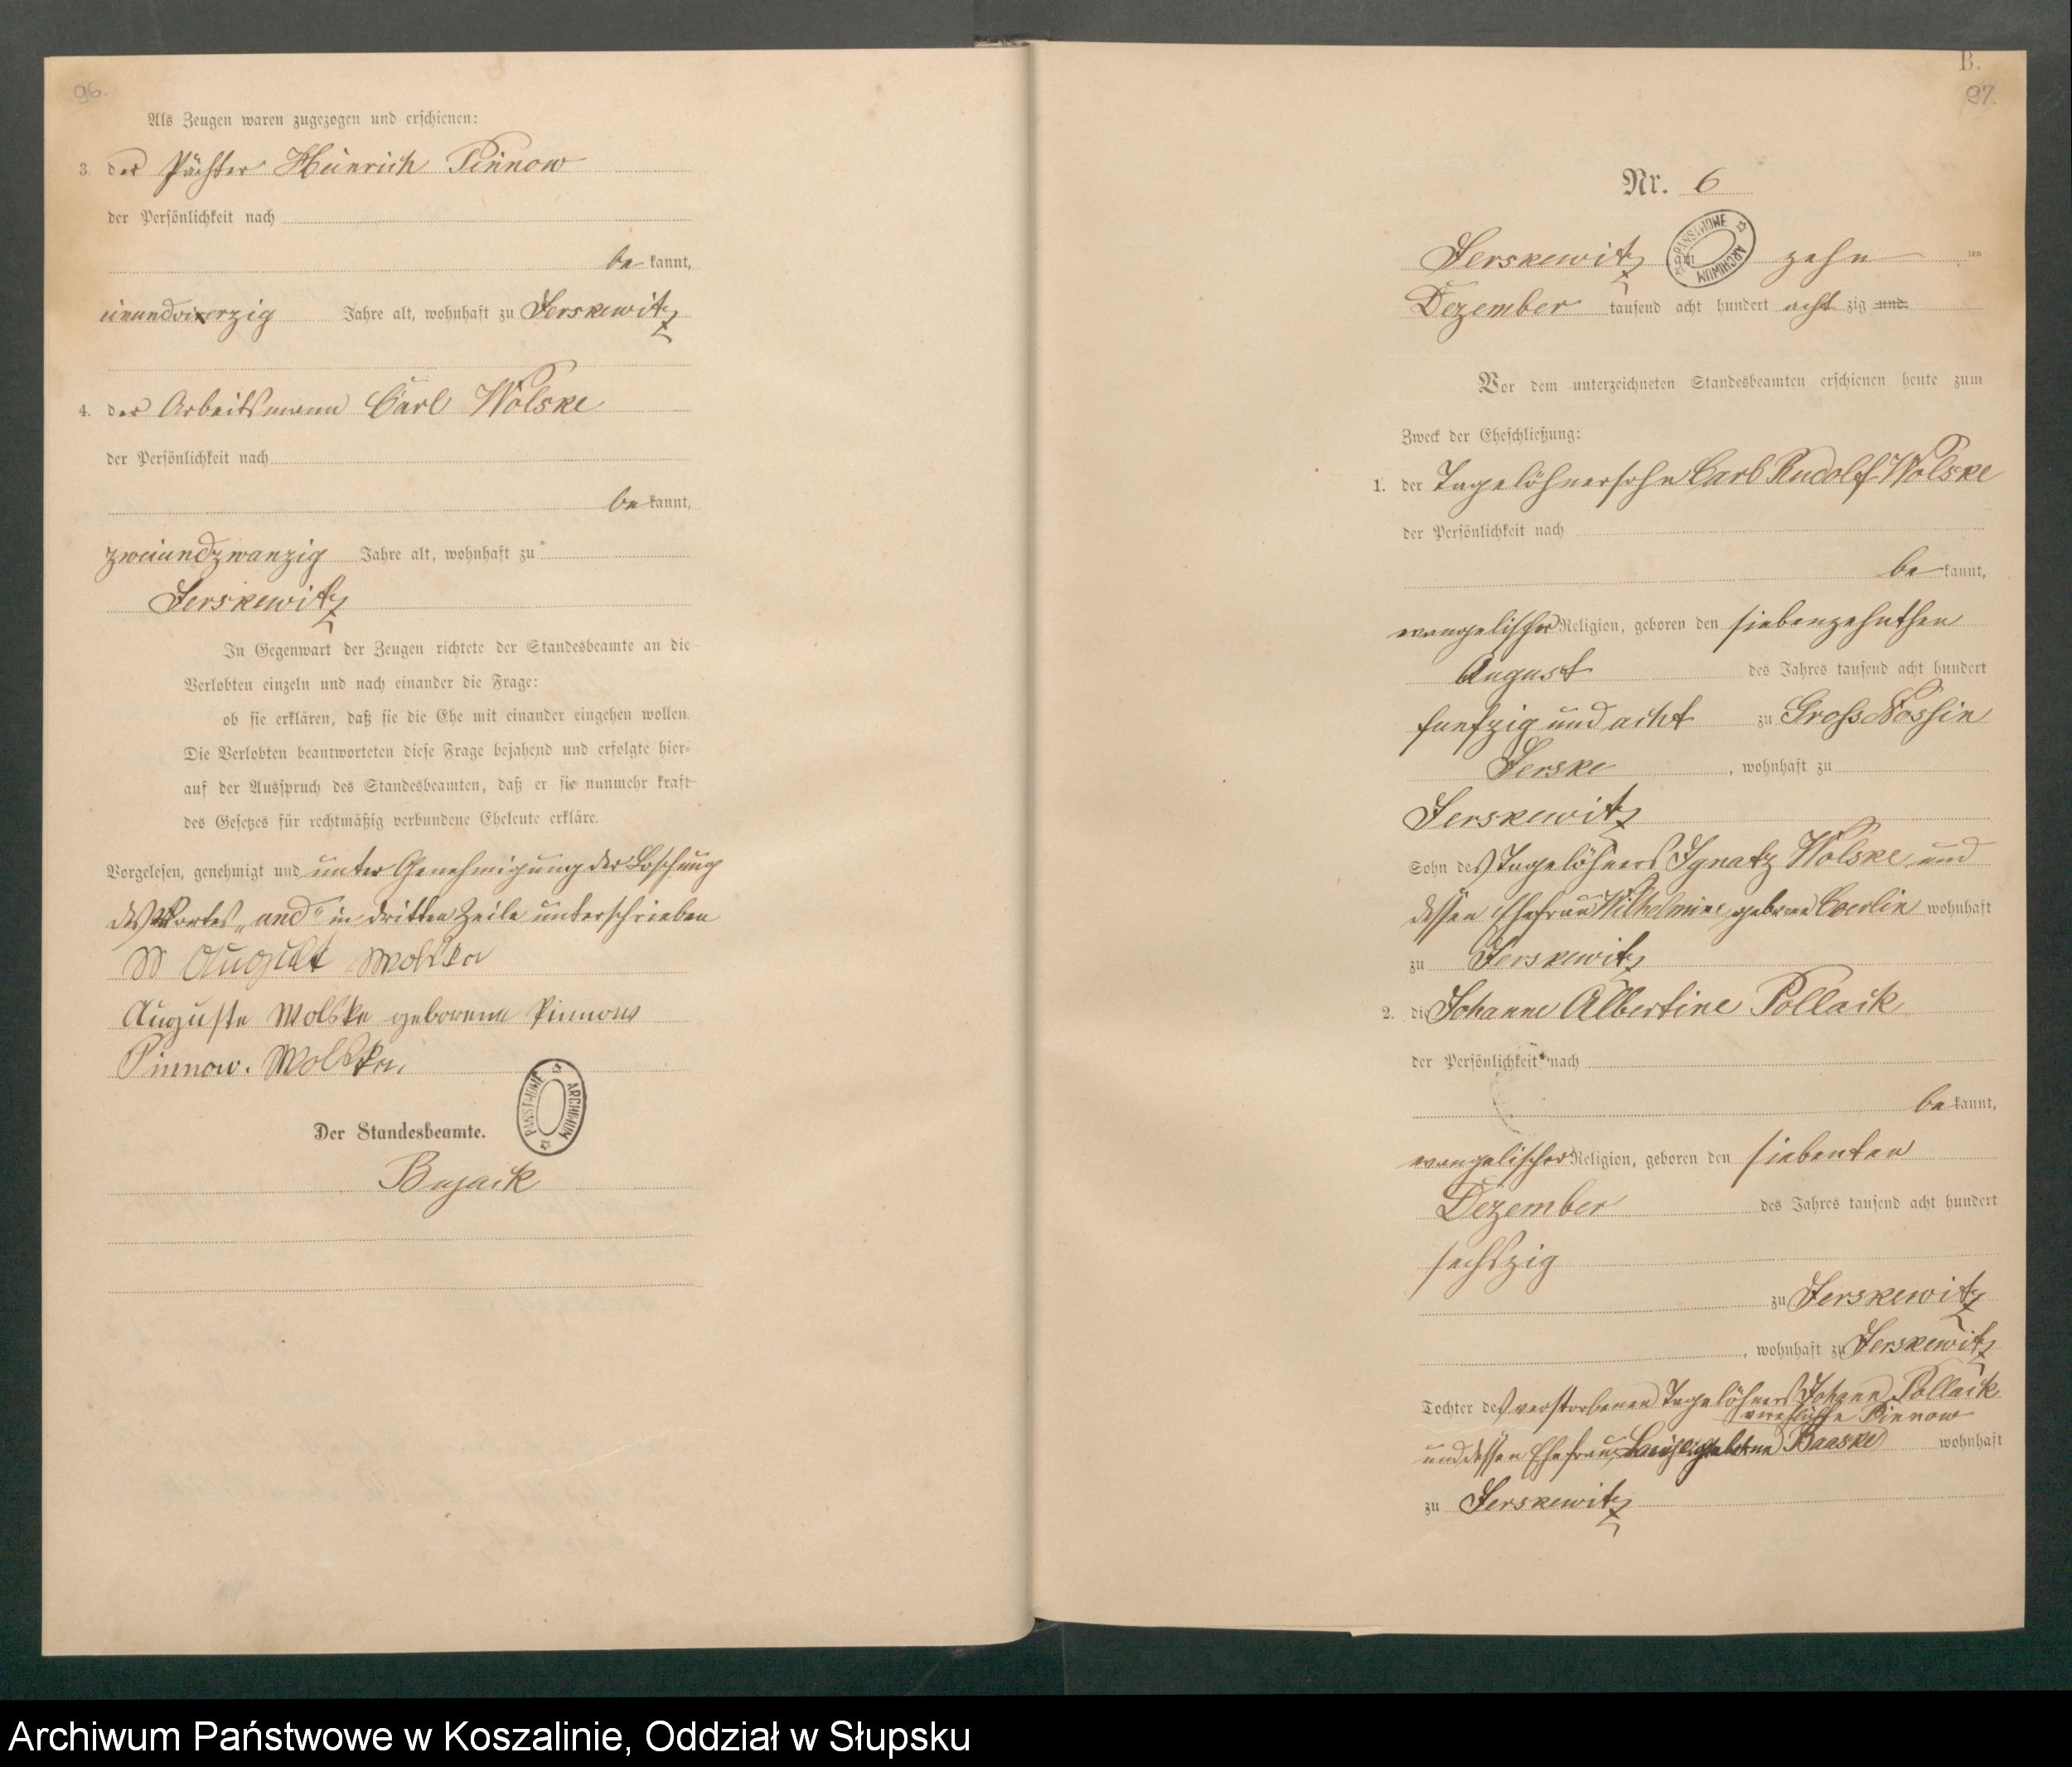 96.
Als Zeugen waren zugezogen und erschienen:
3. der Pächter Heinrich Pinnow
der Persönlichkeit nach
be kannt,
einundvierzig Jahre alt, wohnhaft zu Jerskewitz
4. der Arbeitsmann Carl Wolske
der Persönlichkeit nach
be kannt,
zweiundzwanzig Jahre alt, wohnhaft zu
Jerskewitz
In Gegenwart der Zeugen richtete der Standesbeamte an die
Verlobten einzeln und nach einander die Frage:
ob sie erklären, daß sie die Ehe mit einander eingehen wollen.
Die Verlobten beantworteten diese Frage bejahend und erfolgte hier-
auf der Ausspruch des Standesbeamten, daß er sie nunmehr kraft
des Gesetzes für rechtmäßig verbundene Eheleute erkläre.
Vorgelesen, genehmigt und unter Genehmigung der Löschung
des Wortes „und" in dritten Zeile unterschrieben
W August Wolske
Auguste Wolske geborene Pinnow
Pinnow. Wolske.
PAŃSTWOWE ARCHIWUM
Der Standesbeamte.
Bujack
B.
97.
Nr. 6
Jerskewitz am zehn ten
PAŃSTWOWE ARCHIWUM
Dezember tausend acht hundert acht zig und
Vor dem unterzeichneten Standesbeamten erschienen heute zum
Zweck der Eheschließung:
1. der Tagelöhnersohn Carl Rudolf Wolske
der Persönlichkeit nach
be kannt,
evangelischer Religion, geboren den siebenzehnthen
August des Jahres tausend acht hundert
funfzig und acht zu Groß Nossin
Jerske, wohnhaft zu
Jerskewitz
Sohn des Tagelöhners Ignatz Wolske und
dessen Ehefrau Wilhelmine, geborene wohnhaft
zu Jerskewitz
2. die Johanne Albertine Pollack
der Persönlichkeit nach
be kannt,
evangelischer Religion, geboren den siebenten
Dezember des Jahres tausend acht hundert
sechszig
zu Jerskewitz
, wohnhaft zu Jerskewitz
Tochter des verstorbenen Tagelöhners Johann Pollack
verehelichte Pinnow
und dessen Ehefrau, Louise geborne Baaske wohnhaft
zu Jerskewitz
Archiwum Państwowe w Koszalinie, Oddział w Słupsku